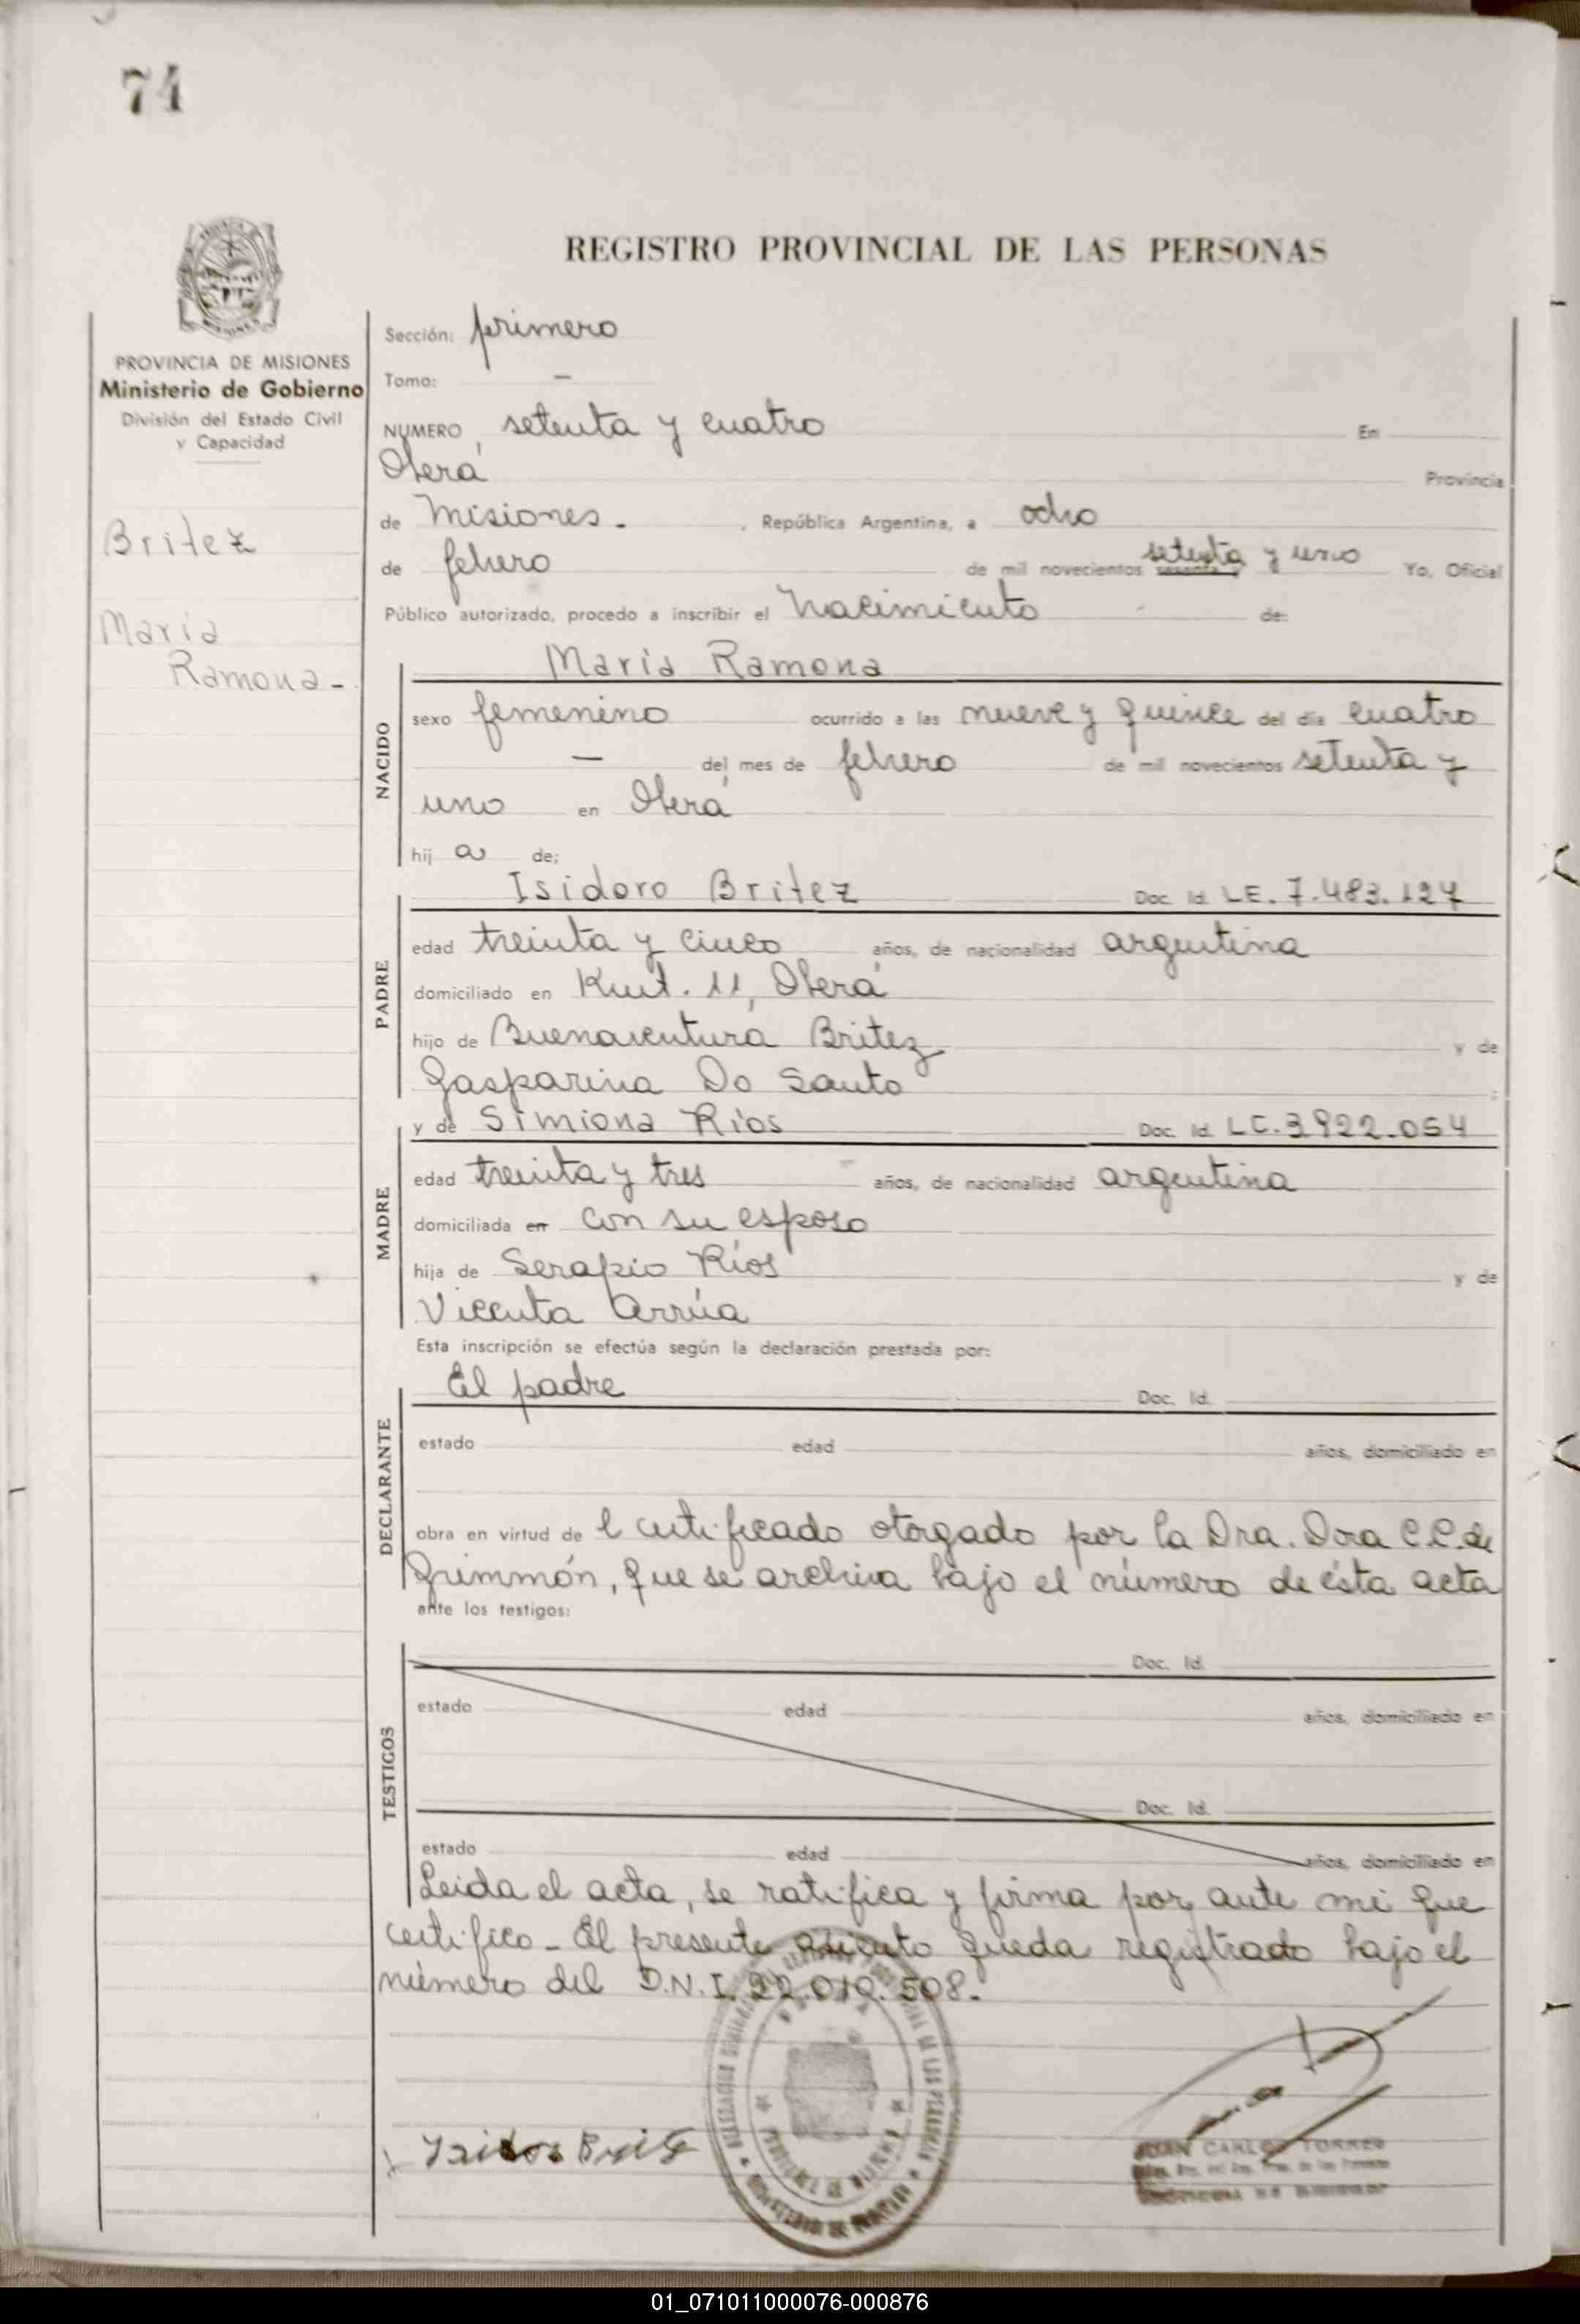 74
REGISTRO PROVINCIAL DE LAS PERSONAS
PROVINCIA DE MISIONES
Ministerio de Gobierno
División del Estado Civil
y Capacidad
Britez
María
Ramona-
Sección: primero
Tomo: —
NUMERO setenta y cuatro En
Oberá Provincia
de Misiones. , República Argentina, a ocho
de febrero de mil novecientos sesenta y setenta y uno Yo, Oficial
Público autorizado, procedo a inscribir el Nacimiento de:
María Ramona
NACIDO
sexo femenino ocurrido a las nueve y quince del día cuatro
— del mes de febrero de mil novecientos setenta y
uno en Oberá
hij a de;
Isidoro Britez Doc. Id. LE. 7.483.127
PADRE
edad treinta y cinco años, de nacionalidad argentina
domiciliado en Kmt. 11, Oberá
hijo de Buenaventura Britez y de
Gasparina Do Santo ;
y de Simiona Ríos Doc. Id. LC. 3.922.054
MADRE
edad treinta y tres años, de nacionalidad argentina
domiciliada en con su esposo
hija de Serapio Ríos y de
Vicenta Arrúa
Esta inscripción se efectúa según la declaración prestada por:
El padre Doc. Id.
DECLARANTE
estado edad años, domiciliado en
obra en virtud de l certificado otorgado por la Dra. Dora C.C. de
Grimmón, que se archiva bajo el número de ésta acta
ante los testigos:
TESTIGOS
Doc. Id.
estado edad años, domiciliado en
Doc. Id.
estado edad años, domiciliado en
Leida el acta, se ratifica y firma por ante mi que
certifico - El presente asiento queda registrado bajo el
número del D.N.I. 22.010.508.
JUAN CARLOS TORRES
01_071011000076-000876